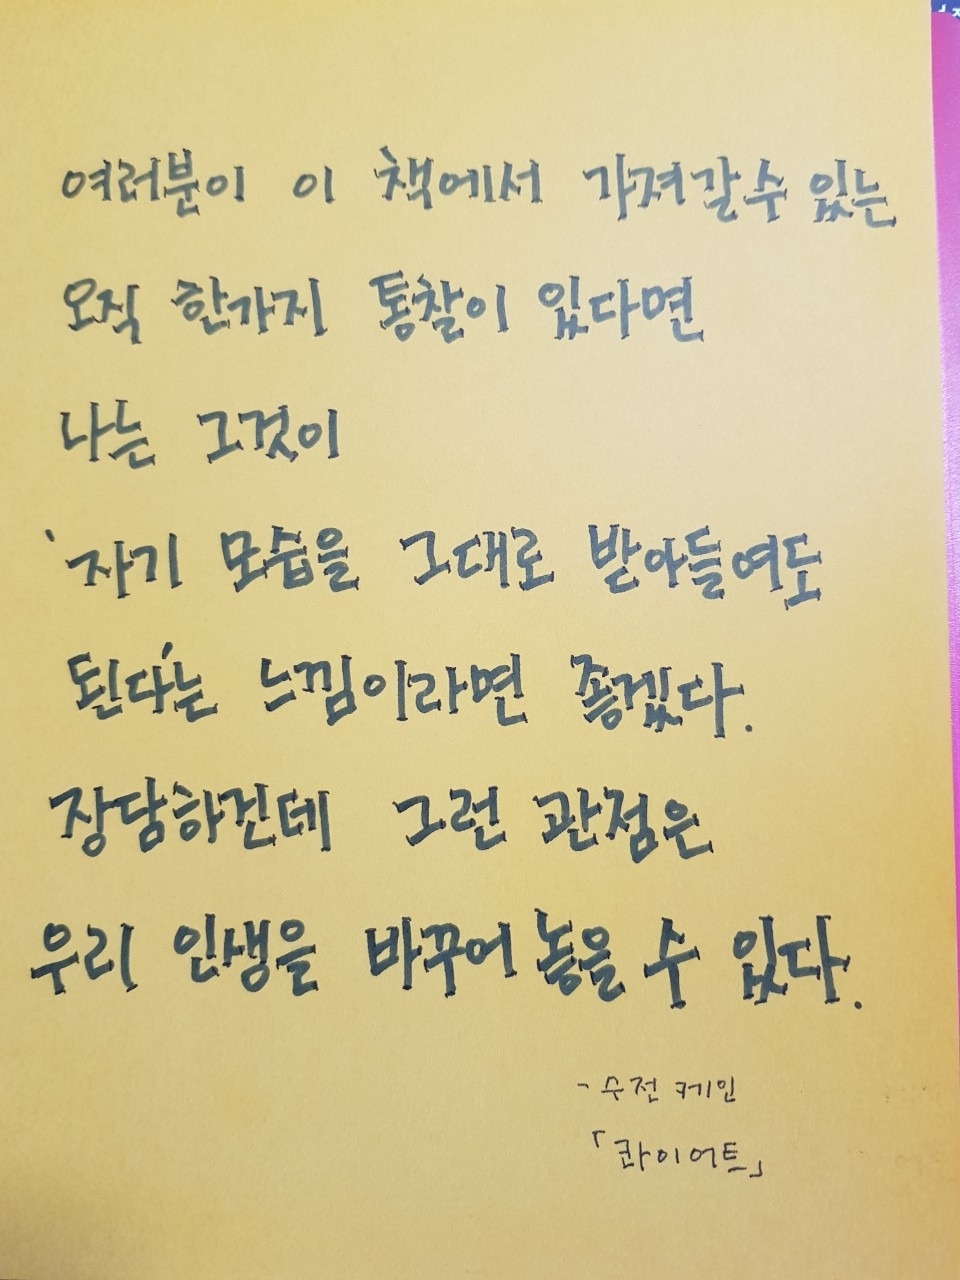 여러분이 이 책에서 가져갈수 있는
오직 한가지 통찰이 있다면
나는 그것이
'자기 모습을 그대로 받아들여도
된다'는 느낌이라면 좋겠다.
장담하건데 그런 관점은
우리 인생을 바꾸어 놓을 수 있다.
- 수전 케인
「콰이어트」